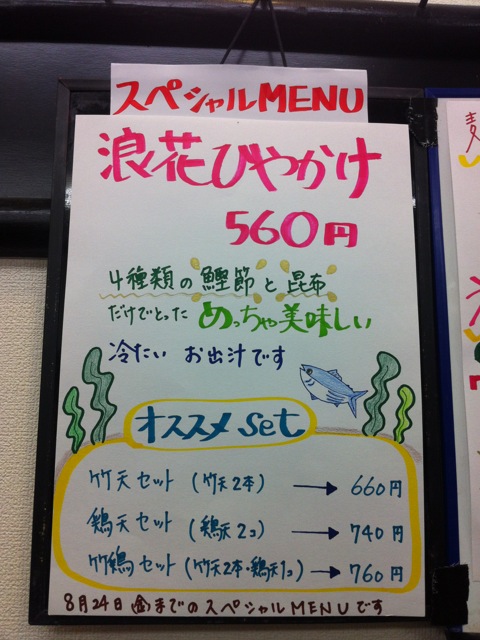 スペシャルMENU
浪花ひやかけ
560円
4種類の鰹節と昆布
だけでとっためっちゃ美味しい
冷たい お出汁です
オススメ set
竹天セット (竹天2本) → 660円
鶏天セット (鶏天2コ) → 740円
竹鶏セット (竹天2本・鶏天1コ) → 760円
8月24日(金)までのスペシャルMENUです
麦